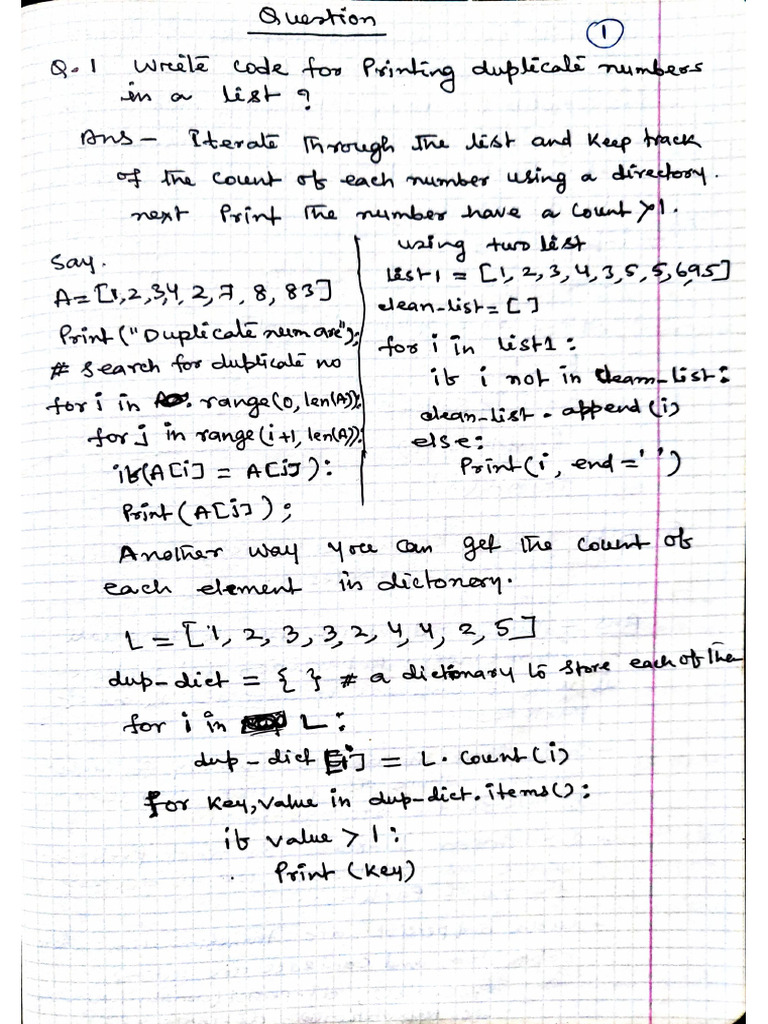 Question
1
Q.1 Write code for Printing duplicate numbers
in a list ?
Ans - Iterate Through The list and Keep track
of the count of each number using a directory.
next Print The number have a count >1.
Say.
A = [1,2,3,4, 2, 7, 8, 83]
Print ("Duplicate num are");
# search for duplicate no
for i in range(0, len(A)):
for j in range(i+1, len(A)):
if(A[i] = A[j]):
Print (A[j]);
using two list
list1 = [1, 2, 3, 4, 3, 5, 5, 6, 9, 5]
clean-list = [ ]
for i in list1:
if i not in clean-list:
clean-list.append(i)
else:
Print(i, end = ' ')
Another way you can get the count of
each element in dictonery.
L = [1, 2, 3, 3, 2, 4, 4, 2, 5]
dup-dict = { } # a dictionary to store each of the
for i in L:
dup-dict [i] = L.count(i)
for key, value in dup-dict.items():
if value > 1:
Print (key)